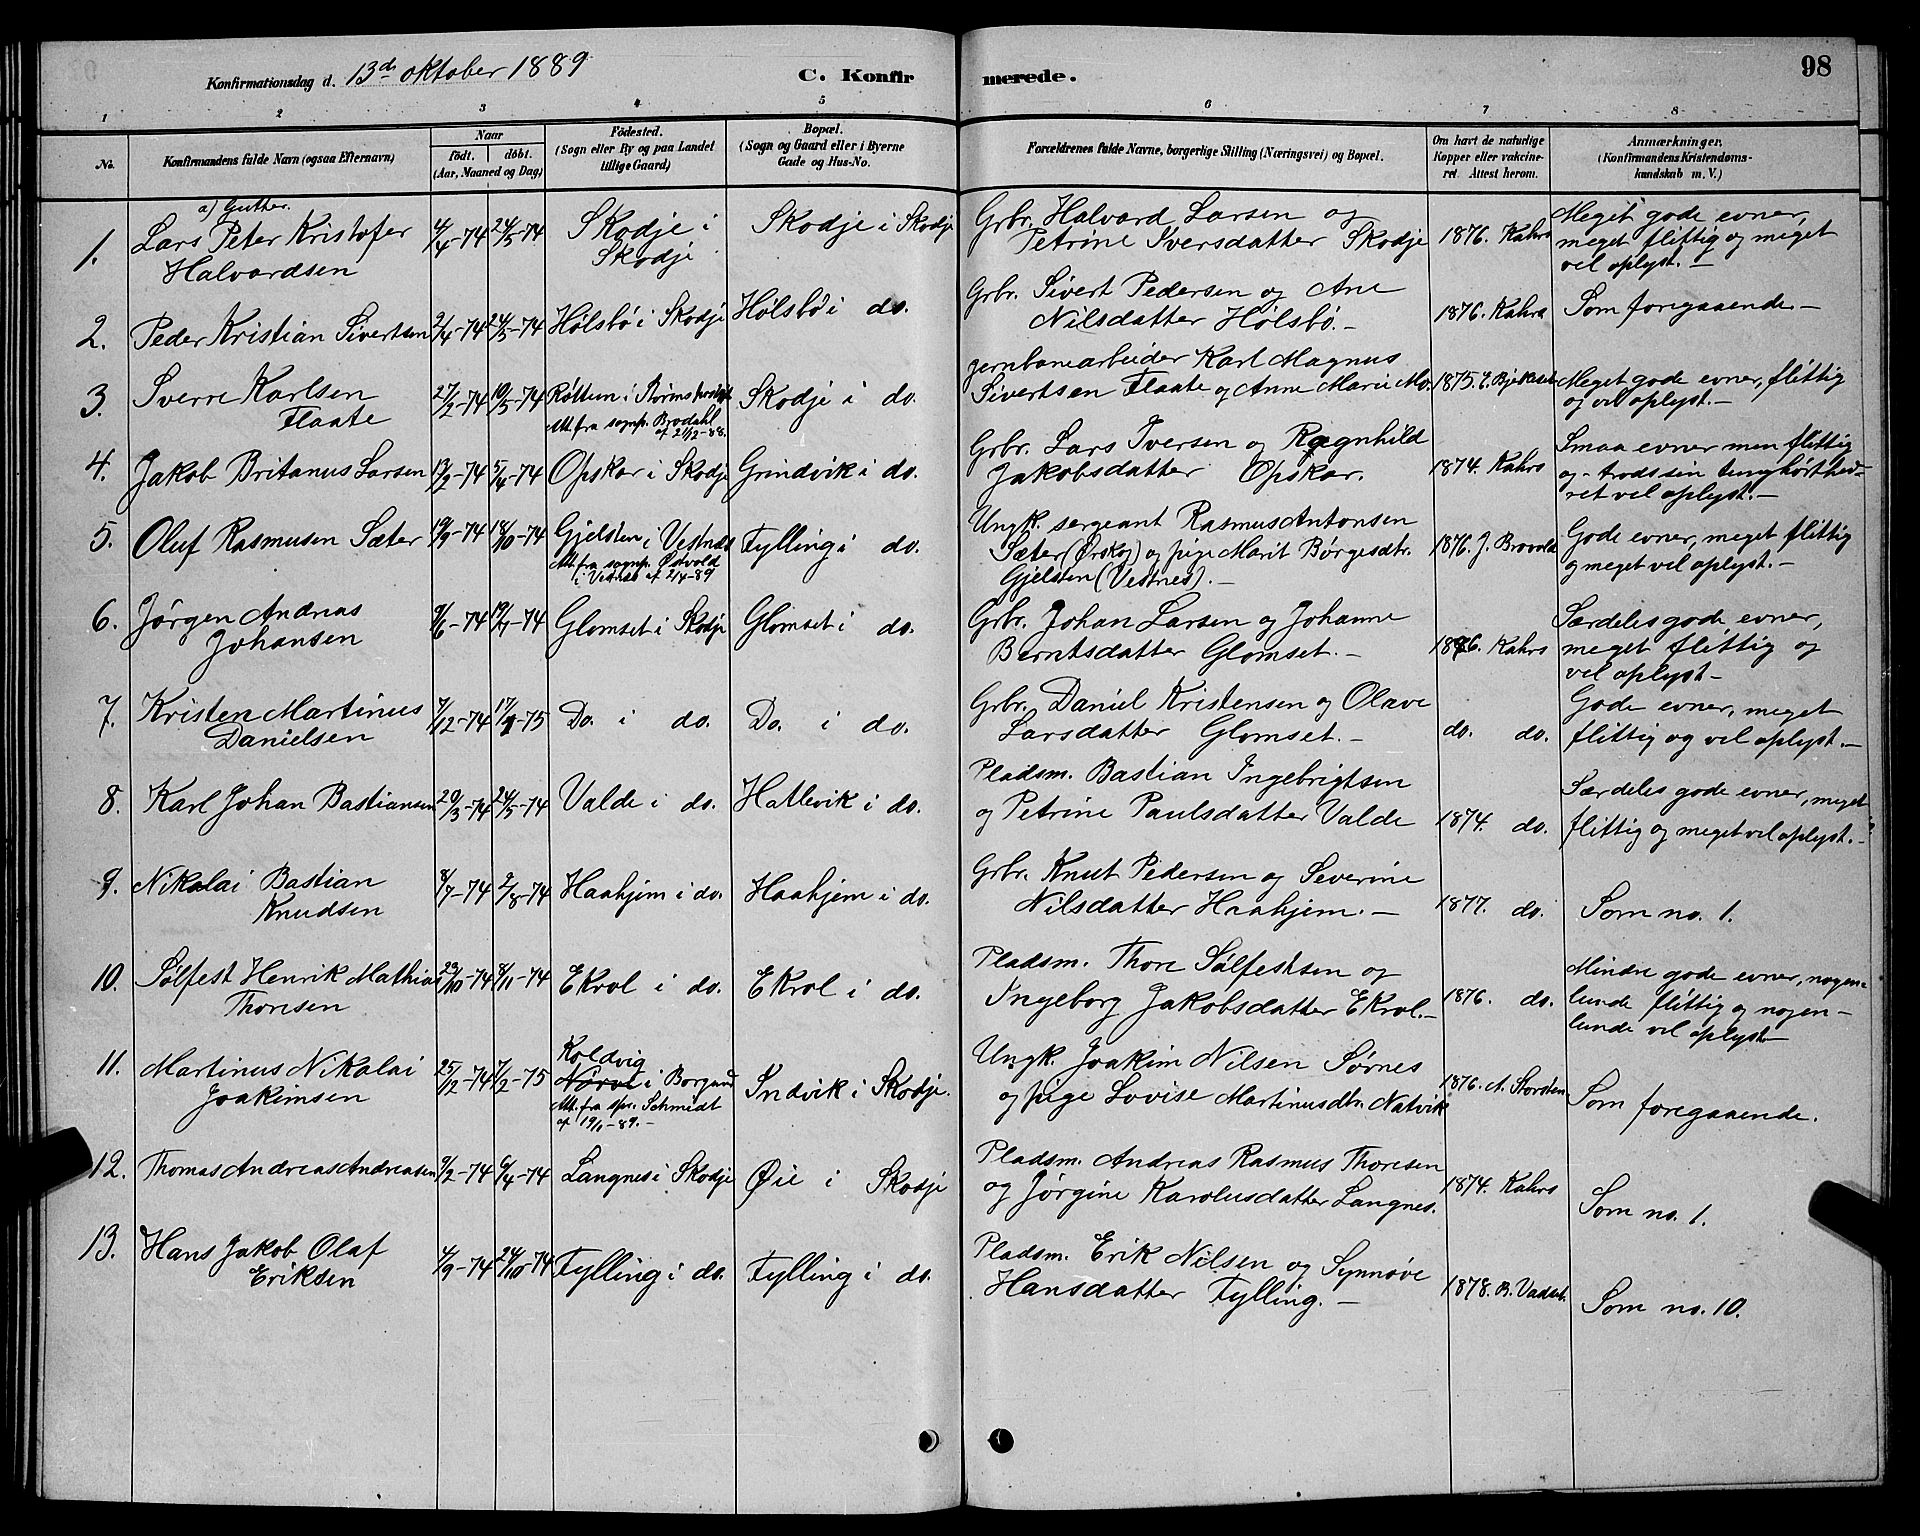 Konfirmationsdag d. 13de oktober 1889
C. Konfirmerede.
98
1 2 3 4 5 6 7 8
No.
Konfirmandens fulde Navn (ogsaa Efternavn)
Naar
født. døbt.
(Aar, Maaned og Dag)
Fødested.
(Sogn eller By og paa Landet
tillige Gaard)
Bopæl.
(Sogn og Gaard eller i Byerne
Gade og Hus-No.
Forældrenes fulde Navne, borgerlige Stilling (Næringsvei) og Bopæl.
Om havt de naturlige
Kopper eller vakcine-
ret. Attest herom.
Anmærkninger.
(Konfirmandens Kristendoms-
kundskab m. V.)
a) Gutter.
1. Lars Peter Kristofer
Halvardsen
4/4-74 24/5-74
Skodje i
Skodje
Skodje i Skodje
Grbr. Halvard Larsen og
Petrine Iversdatter Skodje
1876. Kahrs
Meget gode evner,
meget flittig og meget
vel oplyst.-
2. Peder Kristian Sivertsen
2/4-74 24/5-74
Hølsbø i Skodje
Hølsbø i do.
Grbr. Sivert Pedersen og Ane
Nilsdatter Hølsbø.-
1876. Kahrs
Som foregaaende.-
3. Sverre Karlsen
Flaate
27/2-74 10/5-74
Att. fra sognp. Brodahl
af 21/12-88.
Skodje i do.
jernbanearbeider Karl Magnus
Sivertsen Flaate og Anne Marie Mo.
1875.
Meget gode evner, flittig
og vel oplyst.-
4. Jakob Britanus Larsen
13/2-74 5/4-74
Opskar i Skodje
Grindvik i do.
Grbr. Lars Iversen og Ragnhild
Jakobsdatter Opskar.
1874. Kahrs
Smaa evner men flittig
og - trods sin tunghørthed-
ret vel oplyst.-
5. Oluf Rasmusen Sæter
19/9-74 18/10-74
Gjelsten i Vestnes
Att. fra sognp. Østvold
i Vestnes af 2/4-89
Fylling i do.
Ungk. sergeant Rasmus Antonsen
Sæter (Ørskog) og pige Marit Børgesdtr.
Gjelsten (Vestnes).-
1876. J. Brovold
Gode evner, meget flittig
og meget vel oplyst.-
6. Jørgen Andreas
Johansen
9/6-74 19/7-74
Glomset i Skodje
Glomset i do.
Grbr. Johan Larsen og Johanne
Berntsdatter Glomset.-
1876. Kahrs
Særdeles gode evner,
meget flittig og
vel oplyst-
7. Kristen Martinus
Danielsen
7/12-74 17/1-75
Do. i do.
Do. i do.
Grbr. Daniel Kristensen og Olave
Larsdatter Glomset.-
do. do.
Gode evner, meget
flittig og vel oplyst.-
8. Karl Johan Bastiansen
20/3-74 24/5-74
Valde i do.
Hatlevik i do.
Pladsm. Bastian Ingebrigtsen
og Petrine Paulsdatter Valde
1874. do.
Særdeles gode evner, meget
flittig og meget vel oplyst.-
9. Nikolai Bastian
Knudsen
8/7-74 2/8-74
Haahjem i do.
Haahjem i do.
Grbr. Knut Pedersen og Severine
Nilsdatter Haahjem.-
1877. do.
Som no. 1.
10. Sølfest Henrik Mathias
Thoresen
29/10-74 8/11-74
Ekrol i do.
Ekrol i do.
Pladsm. Thore Sølfestsen og
Ingeborg Jakobsdatter Ekrol.-
1876. do.
Mindre gode evner, nogen-
lunde flittig og nogen-
lunde vel oplyst-
11. Martinus Nikolai
Joakimsen
25/12-74 7/2-75
Koldvig
Nørve i Borgund
Att. fra spr. Schmidt
af 19/1-89.-
Indvik i Skodje.
Ungk. Joakim Nilsen Sørnes
og pige Lovise Martinusdtr. Natvik
1876. A. Storsten
Som foregaaende.
12. Thomas Andreas Andreasen
9/2-74 6/4-74
Langnes i Skodje
Øie i Skodje
Pladsm. Andreas Rasmus Thoresen
og Jørgine Karolusdatter Langnes.
1874. Kahrs
Som no. 1.
13. Hans Jakob Olaf
Eriksen
4/9-74 24/10-74
Fylling i do.
Fylling i do.
Pladsm. Erik Nilsen og Synnøve
Hansdatter Fylling.-
1878. B. Vadset.
Som no. 10.